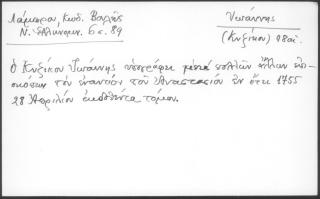 Λάμπρου, Κωδ. Βαλής
Ν. Ἑλληνομν. 6 σ. 89
Ἰωάννης
(Κυζίκου) 18 αἰ.
Ὁ Κυζίκου Ἰωάννης ὑπογράφει μετὰ πολλῶν ἄλλων ἐπι-
σκόπων τὸν ἐναντίον τοῦ Ἀναστασίου ἐν ἔτει 1755
28 Ἀπριλίου ἐκδοθέντα τόμον.